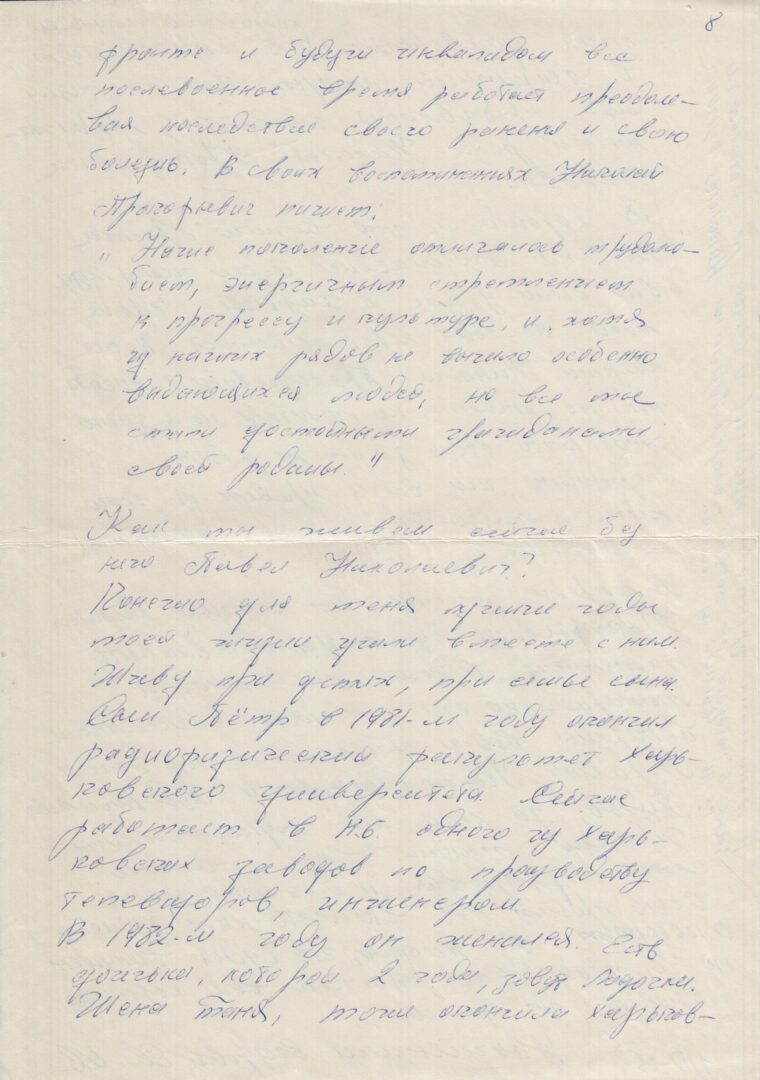 8
фронте и будучи инвалидом все
послевоенное время работает преодоле-
вая последствие своего ранения и свою
болезнь. В своих воспоминаниях Николай
Прокофьевич пишет:
„Наше поколение отличалось трудолю-
бием, энергичным стремлением
к прогрессу и культуре, и хотя
из наших рядов не вышло особенно
выдающихся людей, но все мы
стали достойными гражданами
своей родины."
Как мы живем сейчас без
него Павел Николаевич?
Конечно для меня лучшие годы
моей жизни ушли вместе с ним.
Живу при детях, при семье сына.
Сын Пётр в 1981-м году окончил
радиофизический факультет Харь-
ковского университета. Сейчас
работает в К.Б. одного из Харь-
ковских заводов по производству
телевизоров, инженером.
В 1982-м году он женился. Есть
дочька, которой 2 года, зовут
Жена Таня, тоже окончила Харьков-